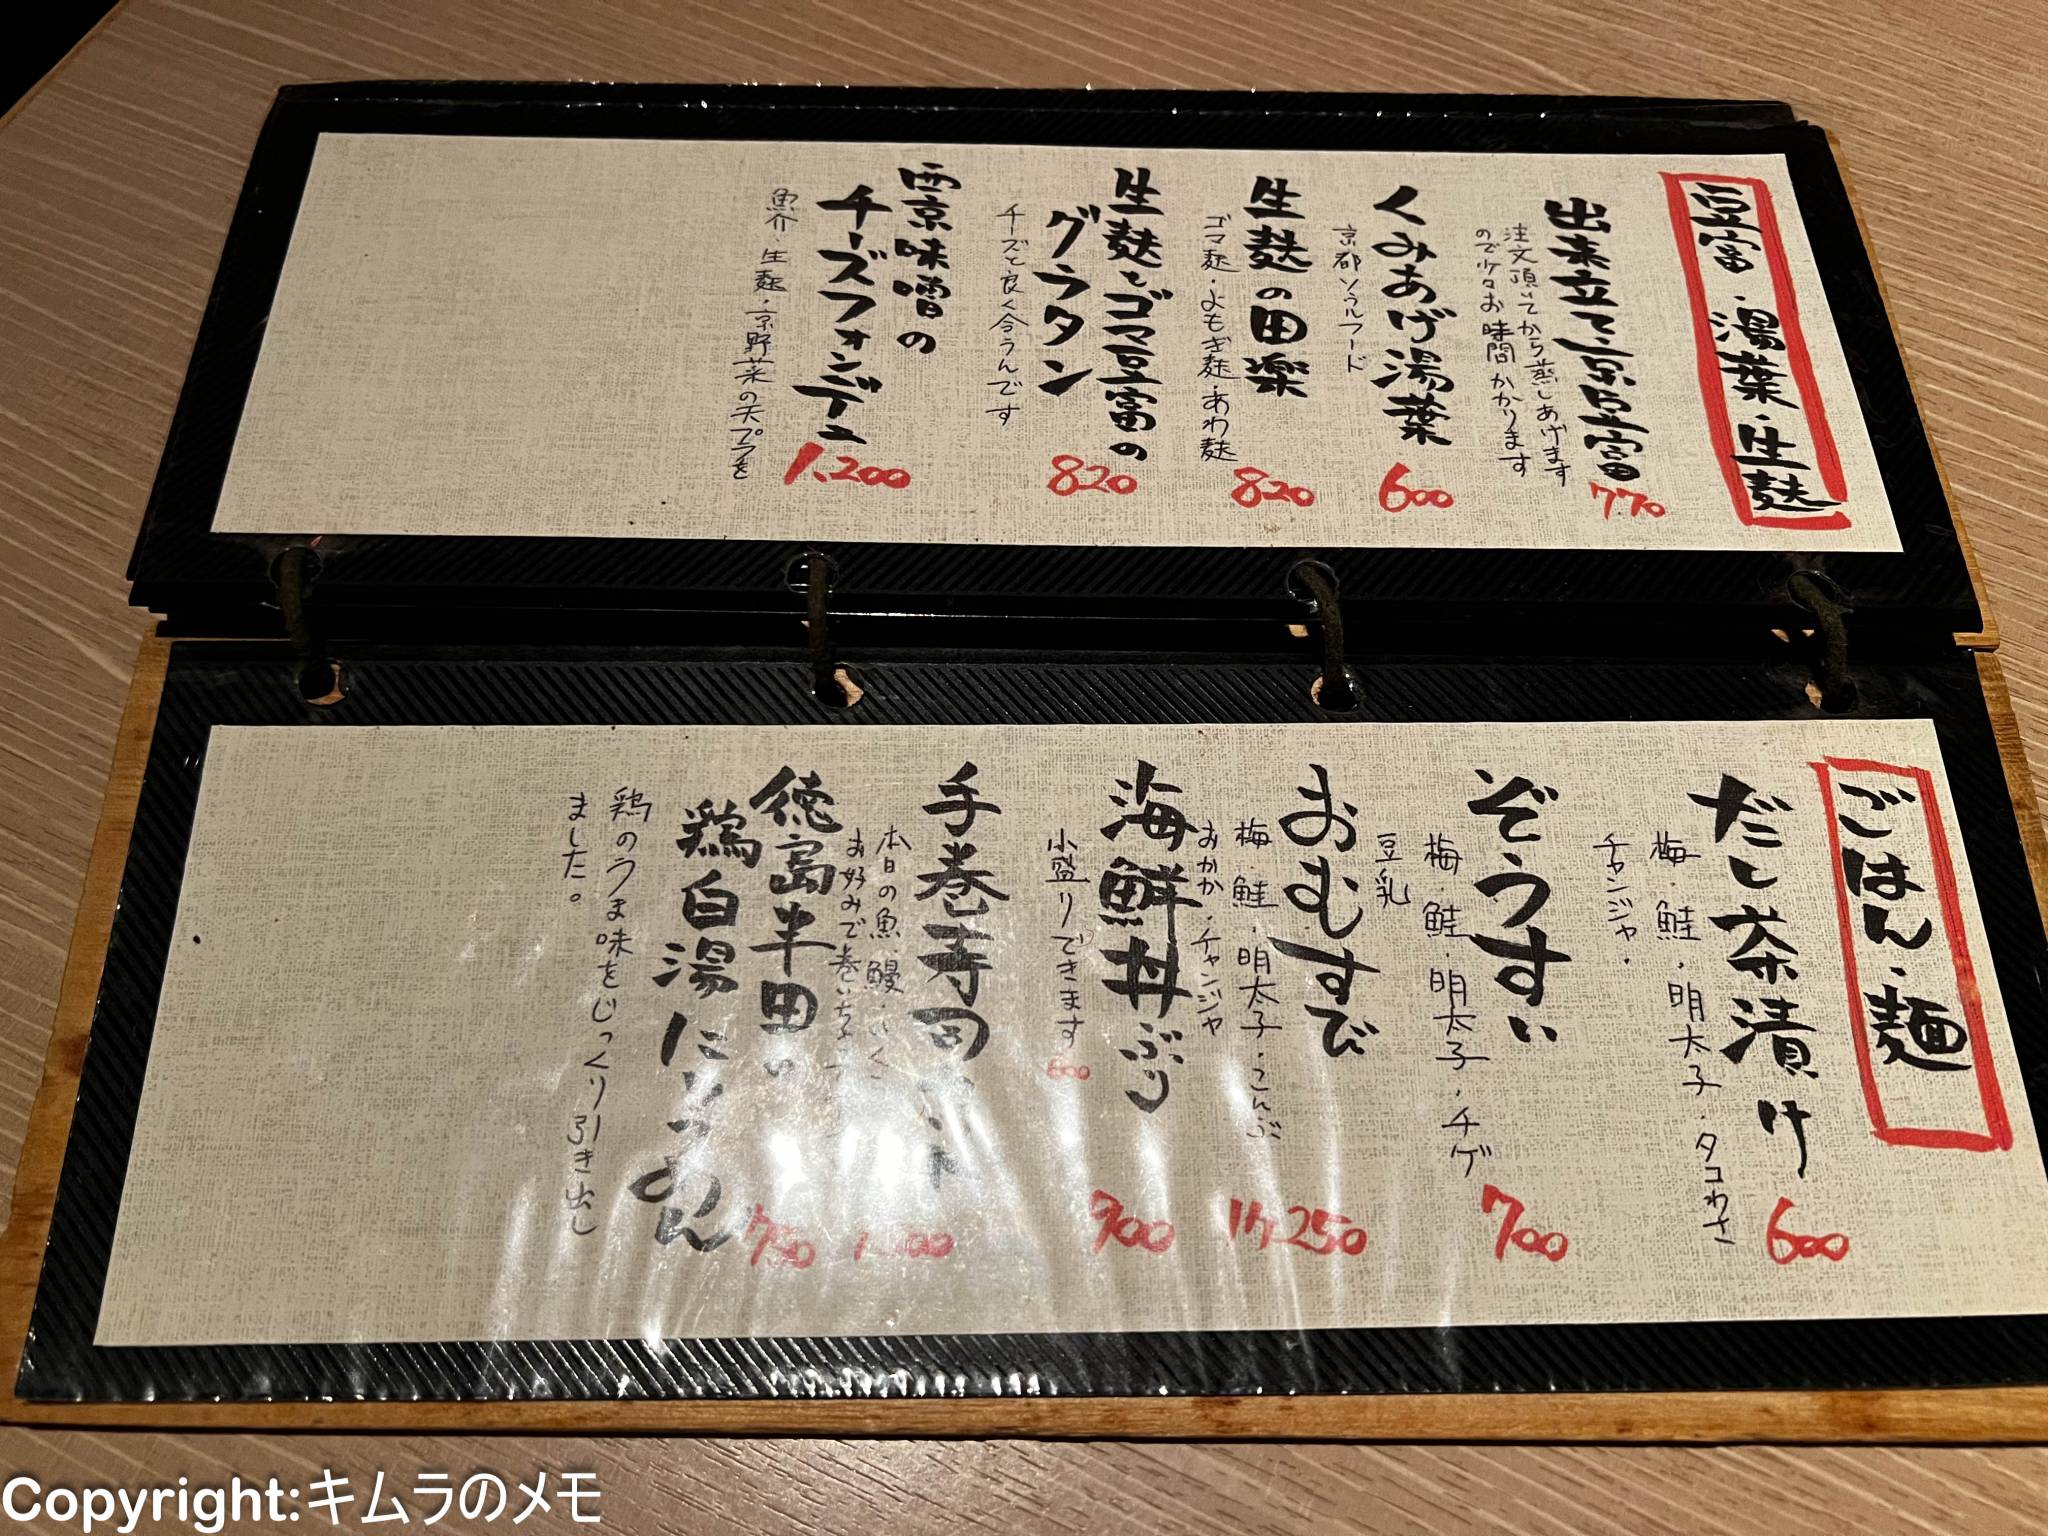 豆富・湯葉・生麩
出来立て京豆富
770
注文頂いてから蒸しあげます
ので少々お時間かかります
くみあげ湯葉
600
京都ソウルフード
生麩の田楽
820
ゴマ麩・よもぎ麩・あわ麩
生麩とゴマ豆富の
グラタン
820
チーズと良く合うんです
西京味噌の
チーズフォンデュ
1,200
魚介・生麩・京野菜の天プラを
ごはん・麺
だし茶漬け
600
梅・鮭・明太子・タコわさ
チャンジャ・
ぞうすい
700
梅・鮭・明太子・チゲ
豆乳
おむすび
1ケ250
梅・鮭・明太子・こんぶ
おかか・チャンジャ
海鮮丼ぶり
900
小盛りできます
600
手巻寿司
本日の魚・鰻・いく
お好みで巻いち
徳島半田の
鶏白湯にゅうめん
750
鶏のうま味をじっくり引き出し
ました。
Copyright:キムラのメモ